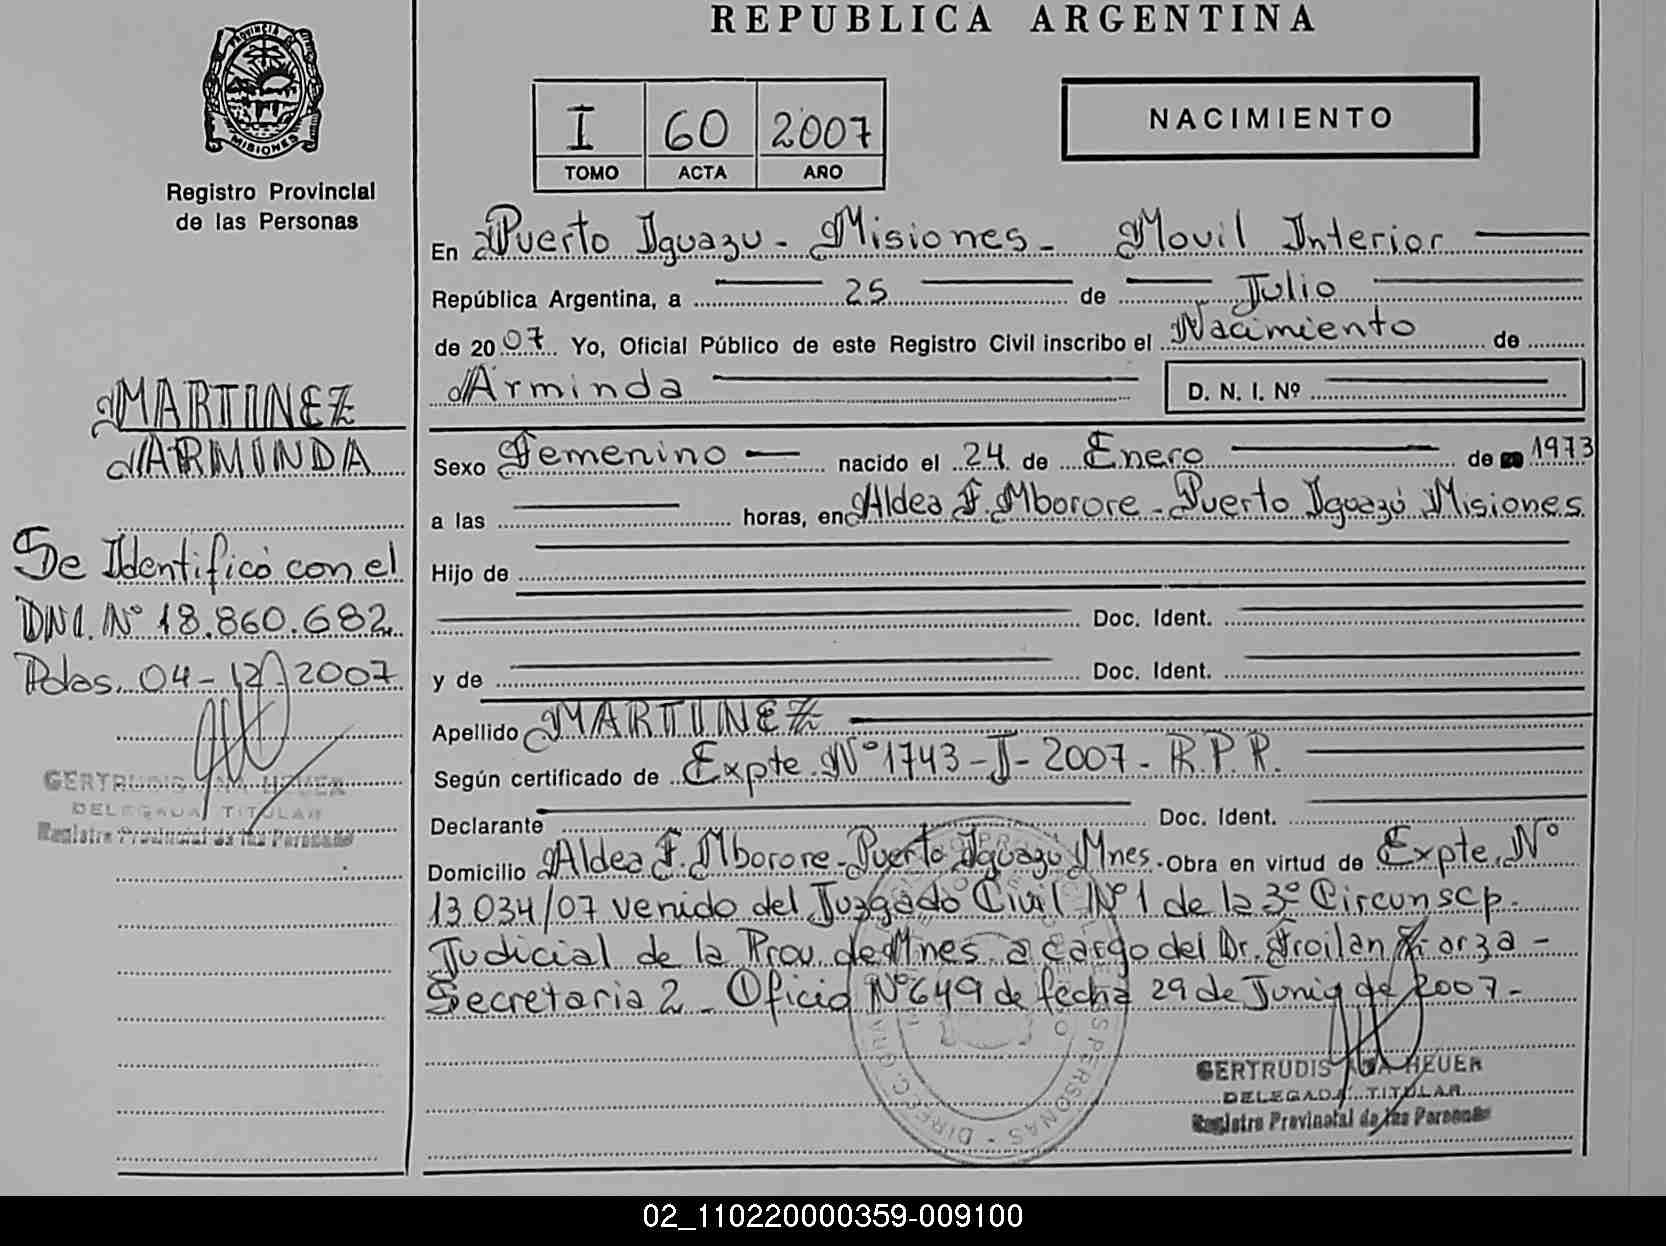 REPUBLICA ARGENTINA
PROVINCIA DE
MISIONES
Registro Provincial
de las Personas
I 60 2007
TOMO ACTA AÑO
NACIMIENTO
En Puerto Iguazu - Misiones - Movil Interior
República Argentina, a 25 de Julio
de 2007 Yo, Oficial Público de este Registro Civil inscribo el Nacimiento de
Arminda D. N. I. Nº
MARTINEZ
ARMINDA
Se Identificó con el
DNI. Nº 18.860.682
Pdas. 04-12-2007
GERTRUDIS HEUER
DELEGADA TITULAR
Registro Provincial de las Personas
Sexo Femenino nacido el 24 de Enero de 1973
a las horas, en Aldea F. Mborore - Puerto Iguazú Misiones
Hijo de
Doc. Ident.
y de Doc. Ident.
Apellido MARTINEZ
Según certificado de Expte. Nº 1743-J-2007- R.P.R.
Declarante Doc. Ident.
Domicilio Aldea F. Mborore - Puerto Iguazu Mnes. Obra en virtud de Expte. Nº
13.034/07 venido del Juzgado Civil Nº 1 de la 3º Circunscp.
Judicial de la Prov. de Mnes. a cargo del Dr. Froilan Zarza -
Secretaria 2 - Oficio Nº 649 de fecha 29 de Junio de 2007 -
GERTRUDIS HEUER
DELEGADA TITULAR
Registro Provincial de las Personas
02_110220000359-009100